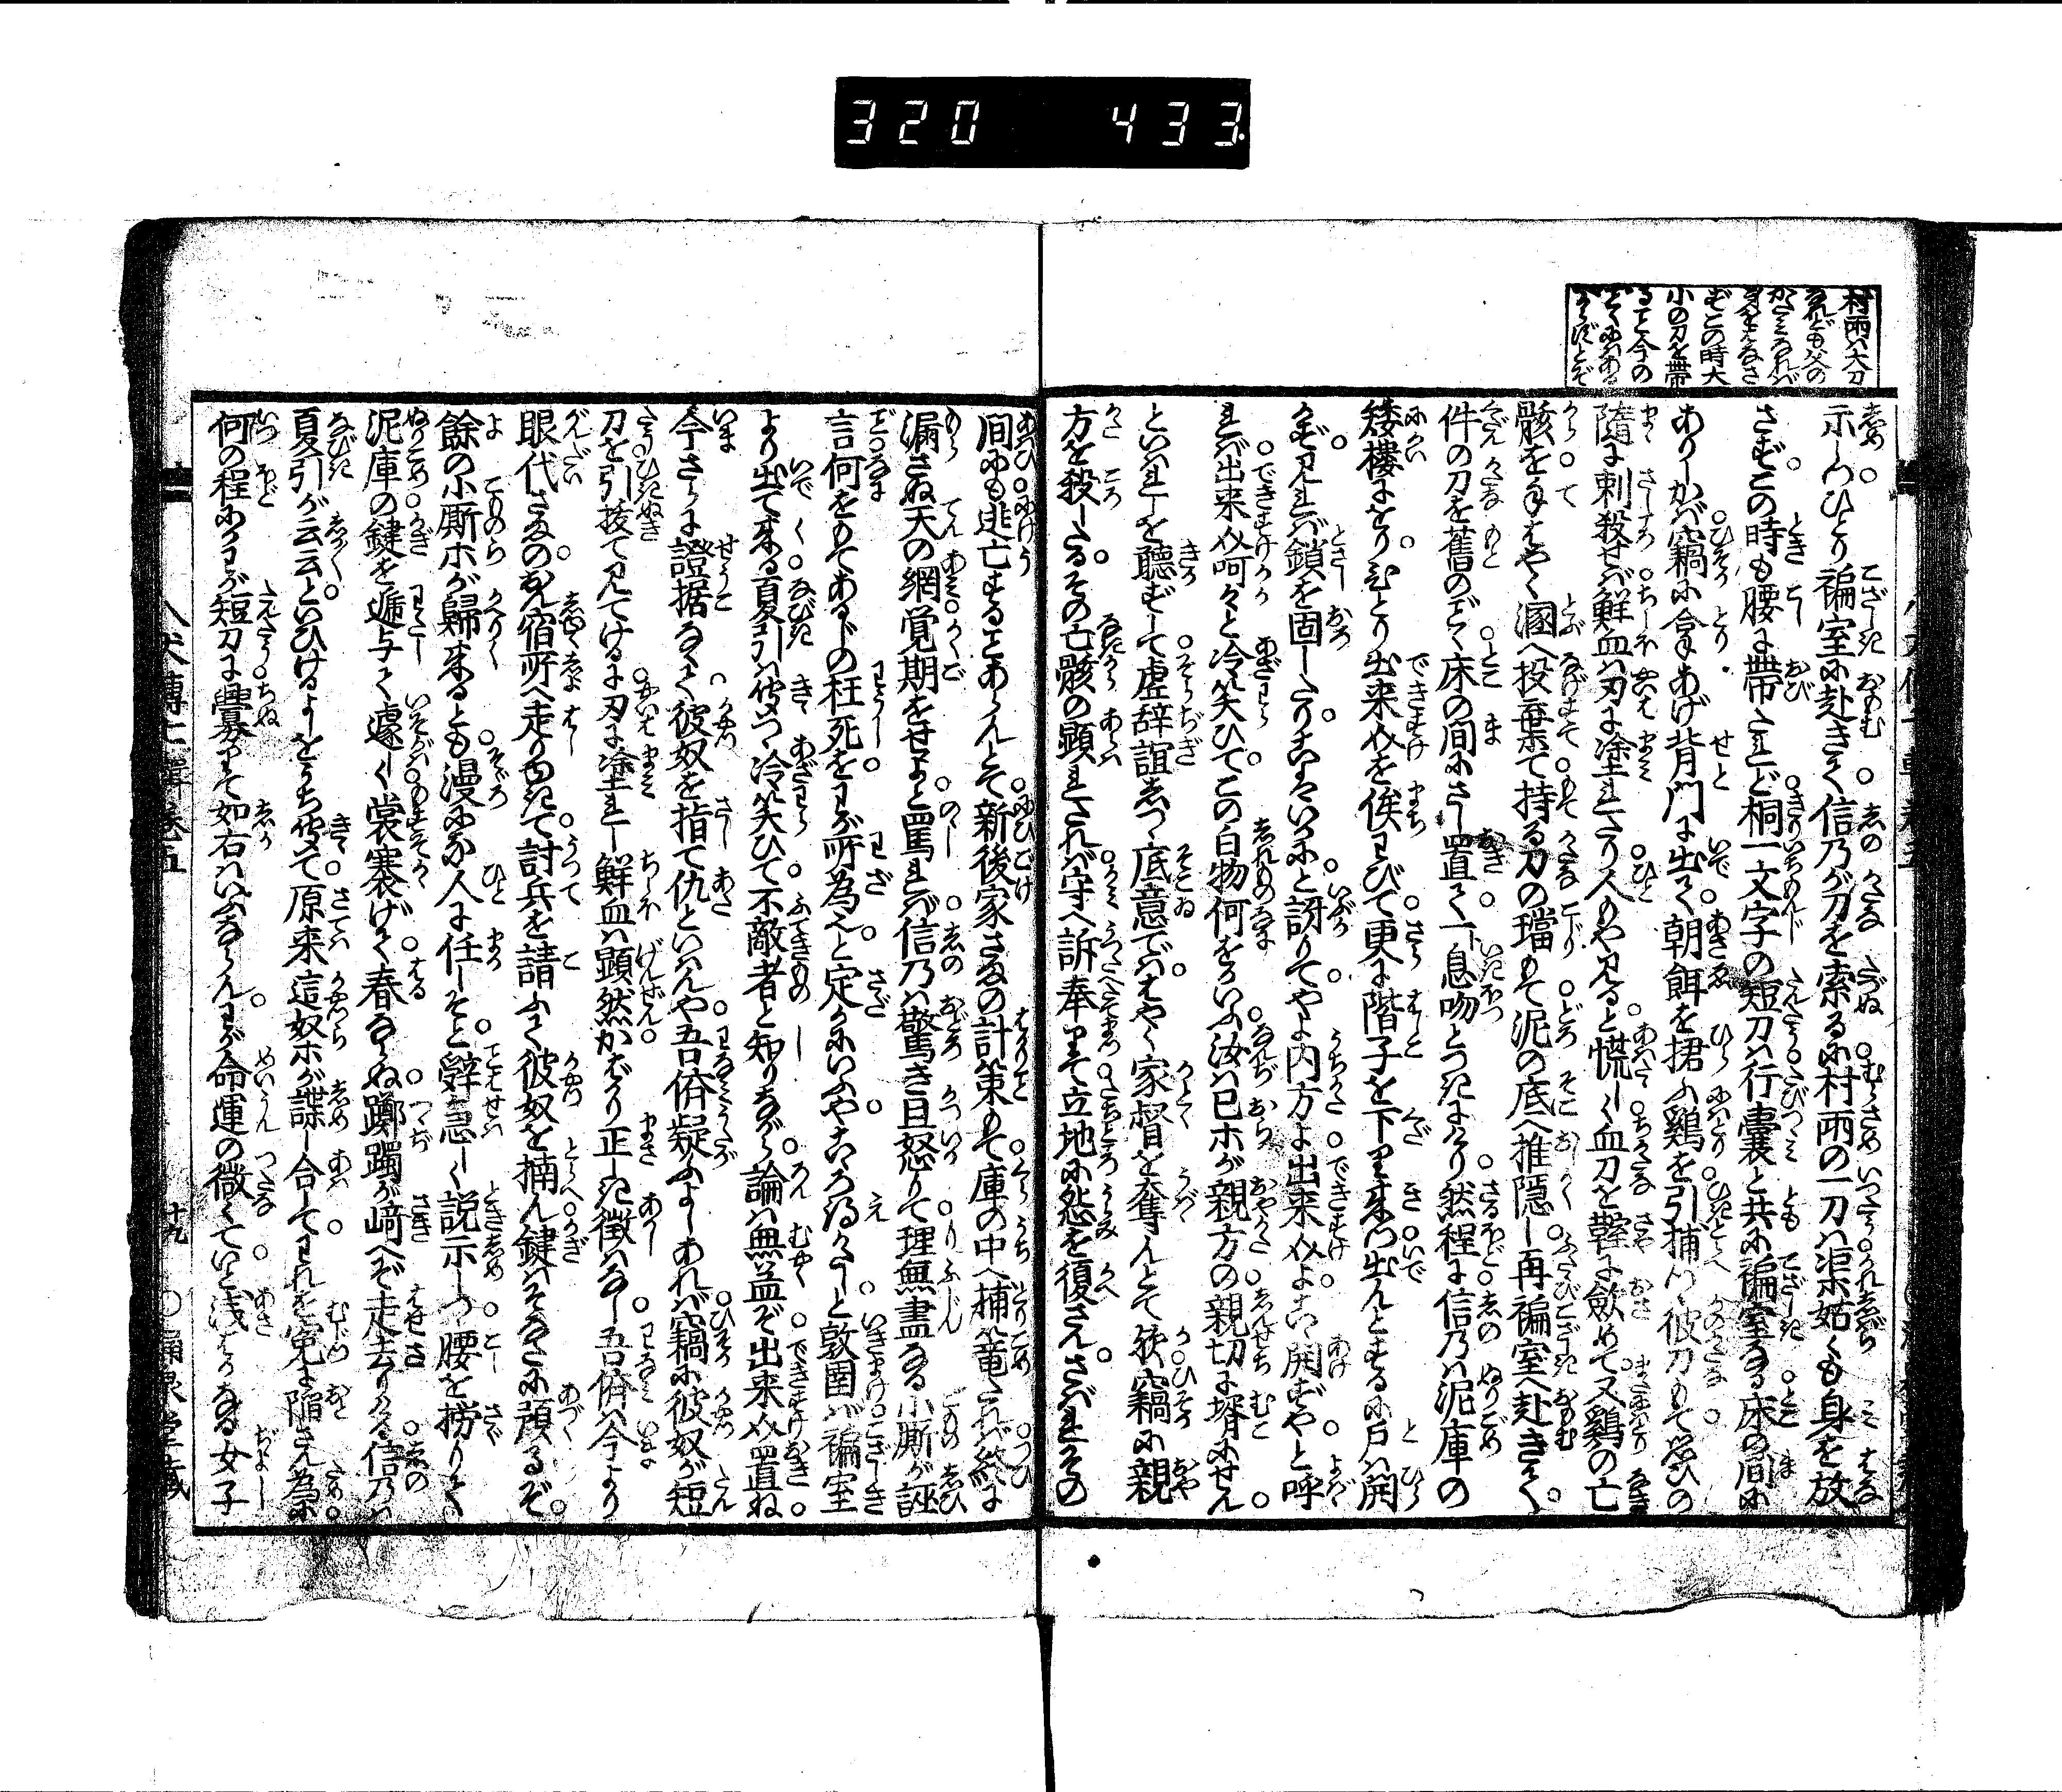 320 433
村雨ハ大刀
なれども父の
かたみなれバ
身をはなさ
ずこの時大
小の刀を帯
ること今の
ごとくにハある
べからずとぞ
示しつひとり褊室に赴きて信乃が刀を索るに村雨の一刀ハ渠姑くも身を放
さずこの時も腰に帯たれど桐一文字の短刀ハ行嚢と共に褊室なる床の間に
ありしかバ竊に拿あげ背門に出て朝餌を捃ふ鶏を引捕つ彼刀もて思ひの
隨に刺殺せバ鮮血ハ刃に塗れたり人もや見ると慌しく血刀を鞘に歛めて又鶏の亡
骸を手はやく溷へ投棄て持る刀の璫もて泥の底へ推隠し再褊室へ赴きて
件の刀を舊のごく床の間にさし置て一ト息吻とつきにけり然程に信乃ハ泥庫の
矮樓にをりひとり出来介を俟わびて更に階子を下り来つ出んとするに戸ハ開
かず見れバ鎖を固したりこハいかにと訝りてやよ内方よ出来介よこゝ開ずやと呼
れバ出来介呵々と冷笑ひてこの白物何をかいふ汝ハ已ホが親方の親切に壻にせん
といハれしを聽ずして虚辞誼しつ底意でハはやく家督を奪んとて欤竊に親
方を殺したるその亡骸の顕れたれバ守へ訴奉りて立地に怨を復さんさバれその
間にも逃亡することあらんとて新後家さまの計策もて庫の中へ捕篭たれバ終に
漏さぬ天の網覚期をせよと罵れバ信乃ハ驚き且怒りて理無盡なる小廝が誣
言何をもてあるじの枉死をわが所為と定かにいふやこゝろ得がたしと敦圉バ褊室
より出て来る夏引ハ聞つゝ冷笑ひて不敵者と知りながら論ハ無益ぞ出来介置ね
今さらに證据なくて彼奴を指て仇といハんや吾儕疑ふよしあれバ竊に彼奴が短
刀を引抜て見てけるに刃に塗れし鮮血ハ顕然かばかり正しき徴ハなし吾儕ハ今より
眼代さまのおん宿所へ走りゆきて討兵を請ふて彼奴を捕ん鍵ハそなたに預るぞ
餘の小廝ホが歸来るとも漫にな人に任しそと辞急しく説示しつゝ腰を撈りて
泥庫の鍵を逓与て遽しく裳褰げて春ならぬ躑躅が﨑へぞ走去りける信乃ハ
夏引が云云といひけるよしをうち聞て原来這奴ホが諜し合してわれを寃に陥さん為に
何の程にかわが短刀に釁りて如右ハいふならんわが命運の微くていと浅はかなる女子
八犬傳七輯巻五
十九